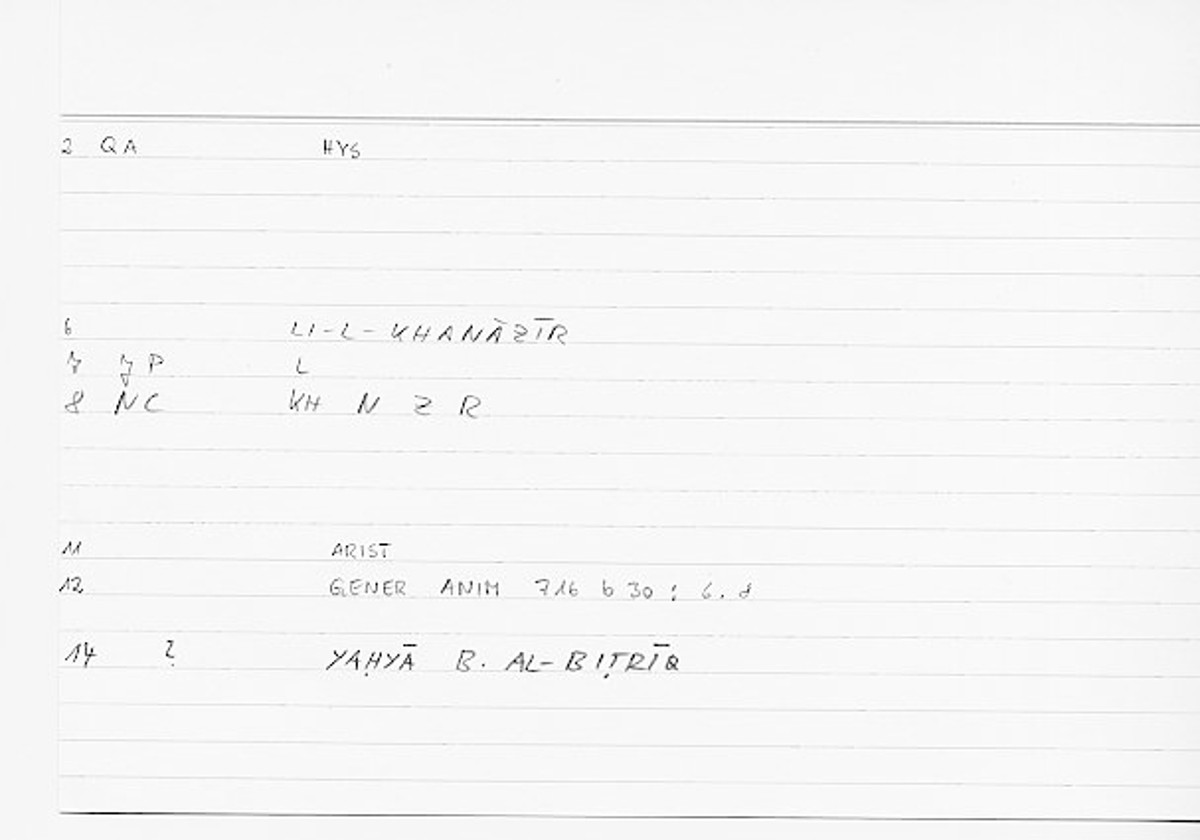 2 QA HYS
6 LI-L-KHANĀZĪR
7 JP L
8 NC KH N Z R
11 ARIST
12 GENER ANIM 716 b 30 ; 6.8
14 ? YAḤYĀ B. AL-BIṬRĪQ